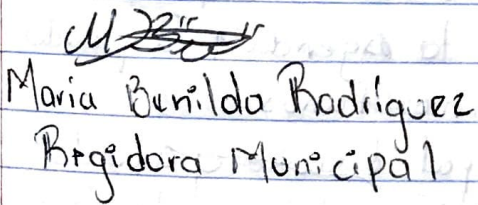 Maria Benilda Rodríguez
Regidora Municipal